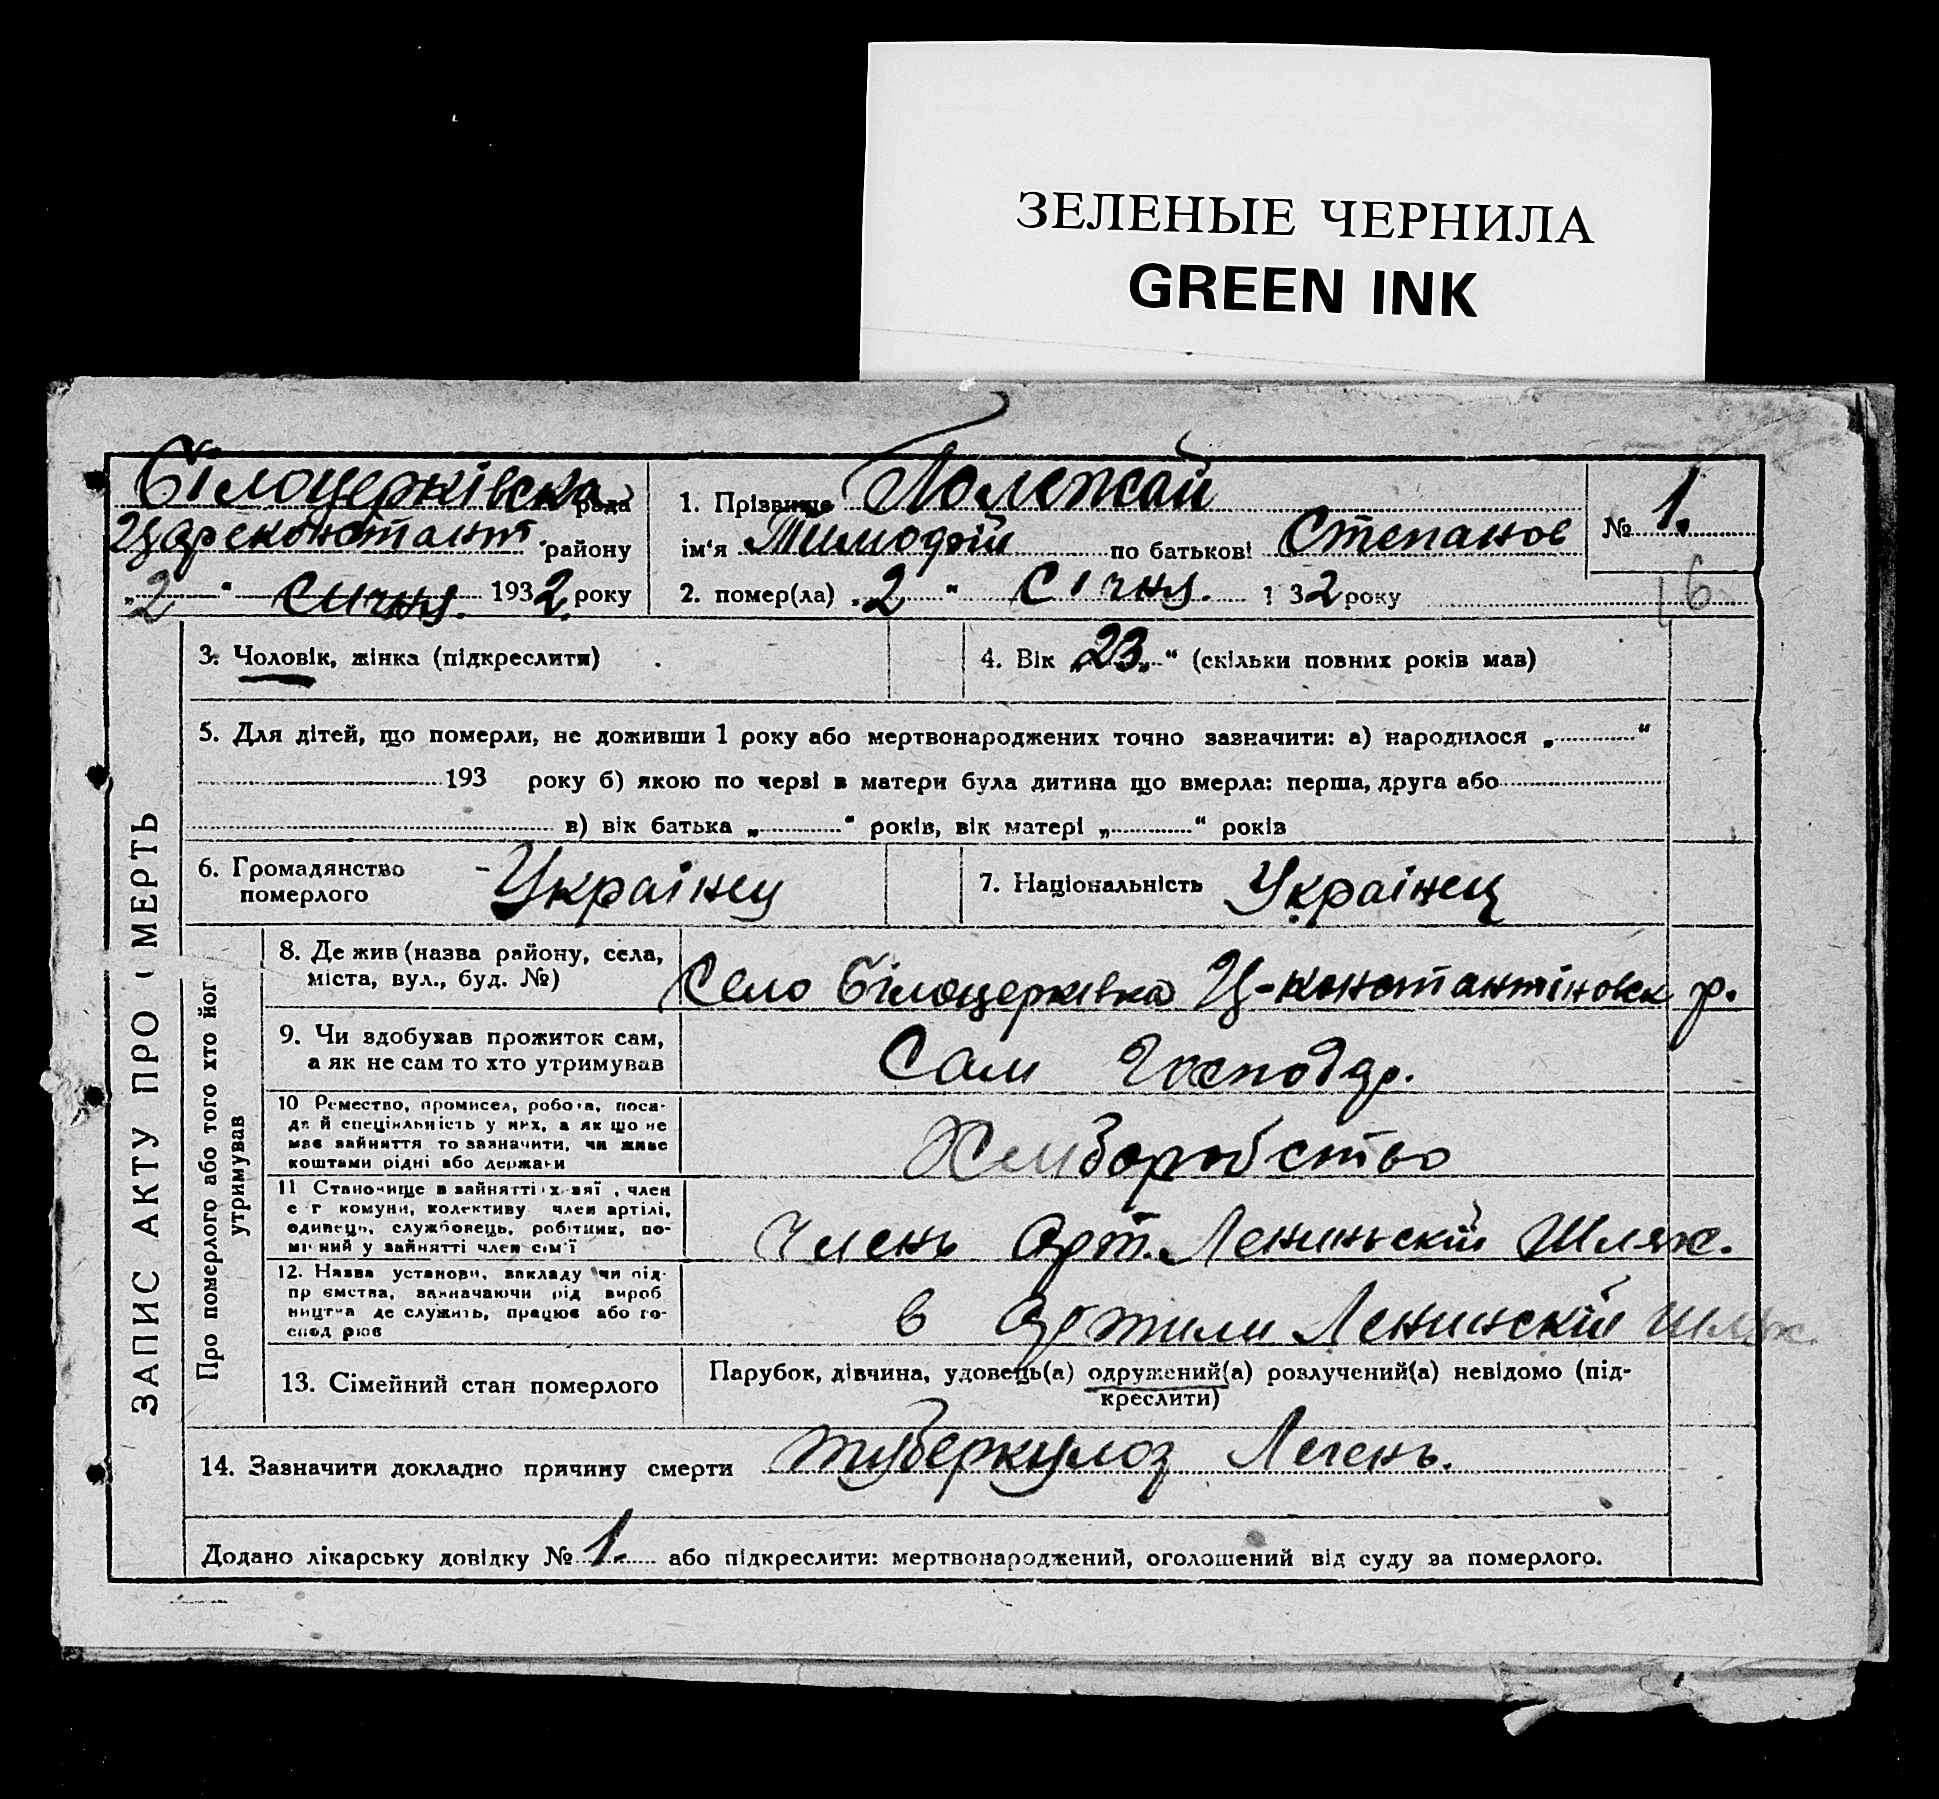 ЗЕЛЕНЫЕ ЧЕРНИЛА
GREEN INK
Білоцерківска рада
Цареконстант. району
„2“ сичня. 1932 року
1. Прізвище Полежай
ім‘я Тимофій по батькові Степанов
2. помер(ла) „2“ Січня. 132 року
№ 1.
16
ЗАПИС АКТУ ПРО СМЕРТЬ
3. Чоловік, жінка (підкреслити)
4. Вік „23“ (скільки повних років мав)
5. Для дітей, що померли, не доживши 1 року або мертвонароджених точно зазначити: а) народилося „ “
193 року б) якою по черзі в матери була дитина що вмерла: перша, друга або
в) вік батька „ “ років, вік матері „ “ років
6. Громадянство
померлого
Українец
7. Національність Українец
Про померлого або того хто його
утримував
8. Де жив (назва району, села,
міста, вул., буд. №)
Село Білоцерківка Ц-константіновск р.
9. Чи здобував прожиток сам,
а як не сам то хто утримував
Сам Господар.
10 Ремество, промисел, робота, поса-
да й спеціяльність у них, а як що не
має зайняття то зазначити, чи живе
коштами рідні або держави
Хліборобство
11 Становище в зайнятті член
с г комуни, колективу член артілі,
одинець, службовець, робітник, по-
мічний у зайнятті член сім‘ї
Члень Арт. Лениньскій Шлях.
12. Назва установи, закладу чи під-
пр ємства, зазначаючи рід вироб
ництва де служить, працює або го-
спод рює
в Артили Ленинскій Шлях
13. Сімейний стан померлого
Парубок, дівчина, удовець(а) одружений(а) розлучений(а) невідомо (під-
креслити)
14. Зазначити докладно причину смерти туберкулоз Легень.
Додано лікарську довідку № 1. або підкреслити: мертвонароджений, оголошений від суду за померлого.